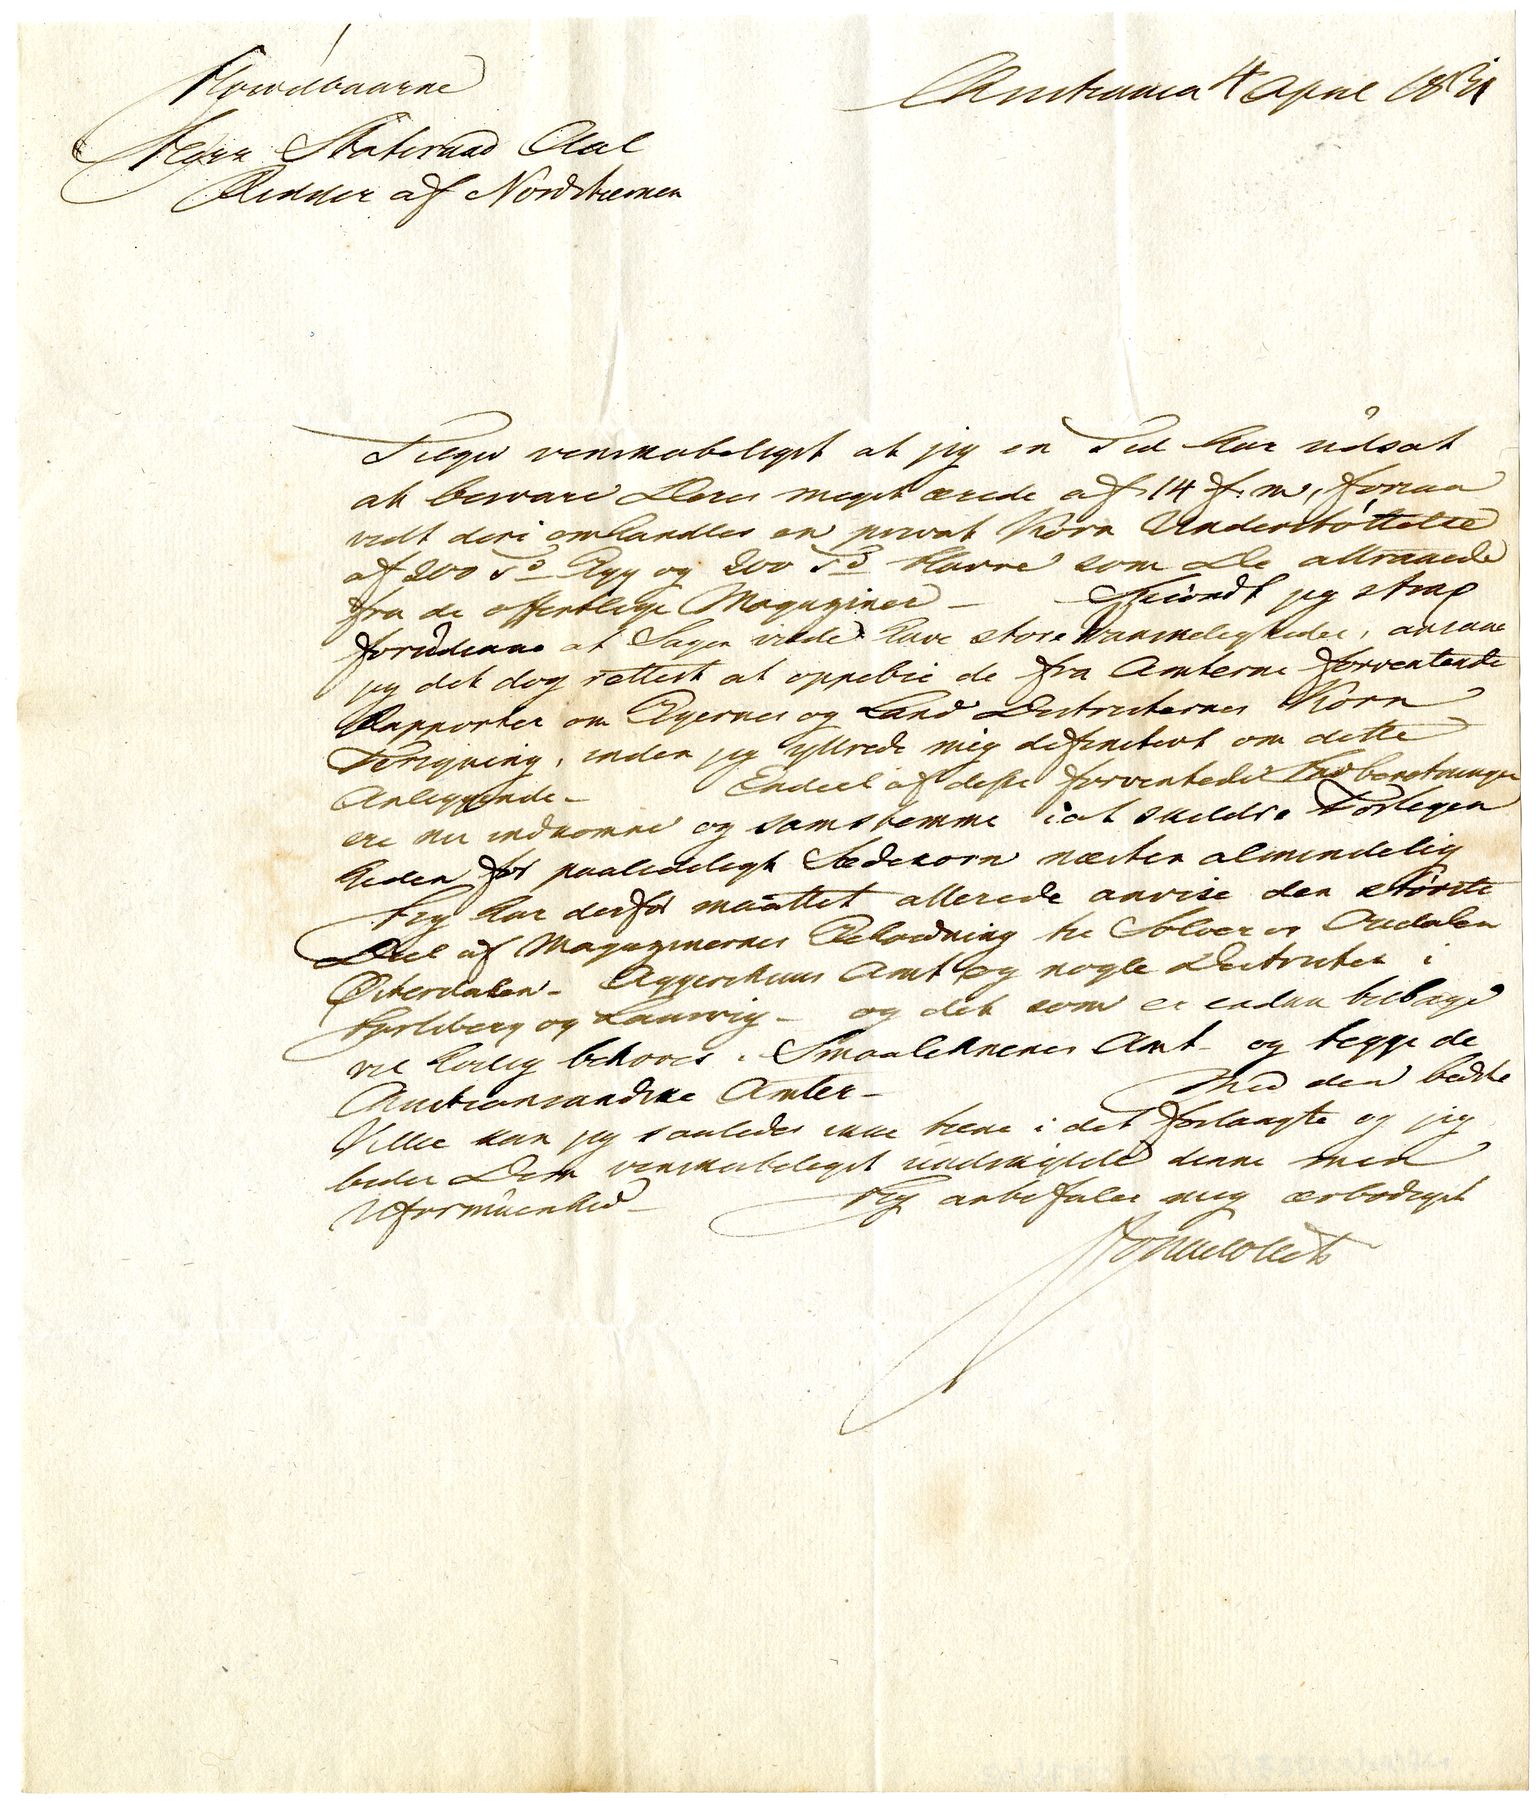 Høivelbaarne
Herr Statsraad Aal
Ridder af Nordstiernen
Christiania 4 April 1831
Tilgiv venskabeligst at jeg en Tid har udsat
at besvare Deres meget ærede af 14 f. m, forsaa
vidt deri omhandles en privat Korn Understøttelse
af 200 Td Byg og 200 Td Havre som De attraaede
fra de offentlige Magaziner – Skiøndt jeg strax
forudsaae at Sagen vilde have store Vanskeligheder, ansaae
jeg det dog rettest at oppebie de fra Amterne forventende
Rapporter om Byernes og Land Districternes Korn
Forsyning, inden jeg yttrede mig definitivt om dette
Anliggende – Endeel af disse forventede Indberetninger
ere nu indkomne og samstemme i at skildre Forlegen
heden for paalideligt Sædekorn næsten almindelig
Jeg har derfor maattet allerede anvise den største
Deel af Magazinernes Beholdning til Soløer og Odalen
Østerdalen – Aggershuus Amt og nogle Districter i
Jarlsberg og Laurvig – og det som er endnu tilbage
vil høilig behøves i Smaalehnenes Amt – og begge de
Christiansandske Amter – Med den bedste
Villie kan jeg saaledes ikke tiene i det forlangte og jeg
beder Dem venskabeligst undskylde denne min
Uformuenhed – Jeg anbefaler mig ærbødigst
Jonas Collett